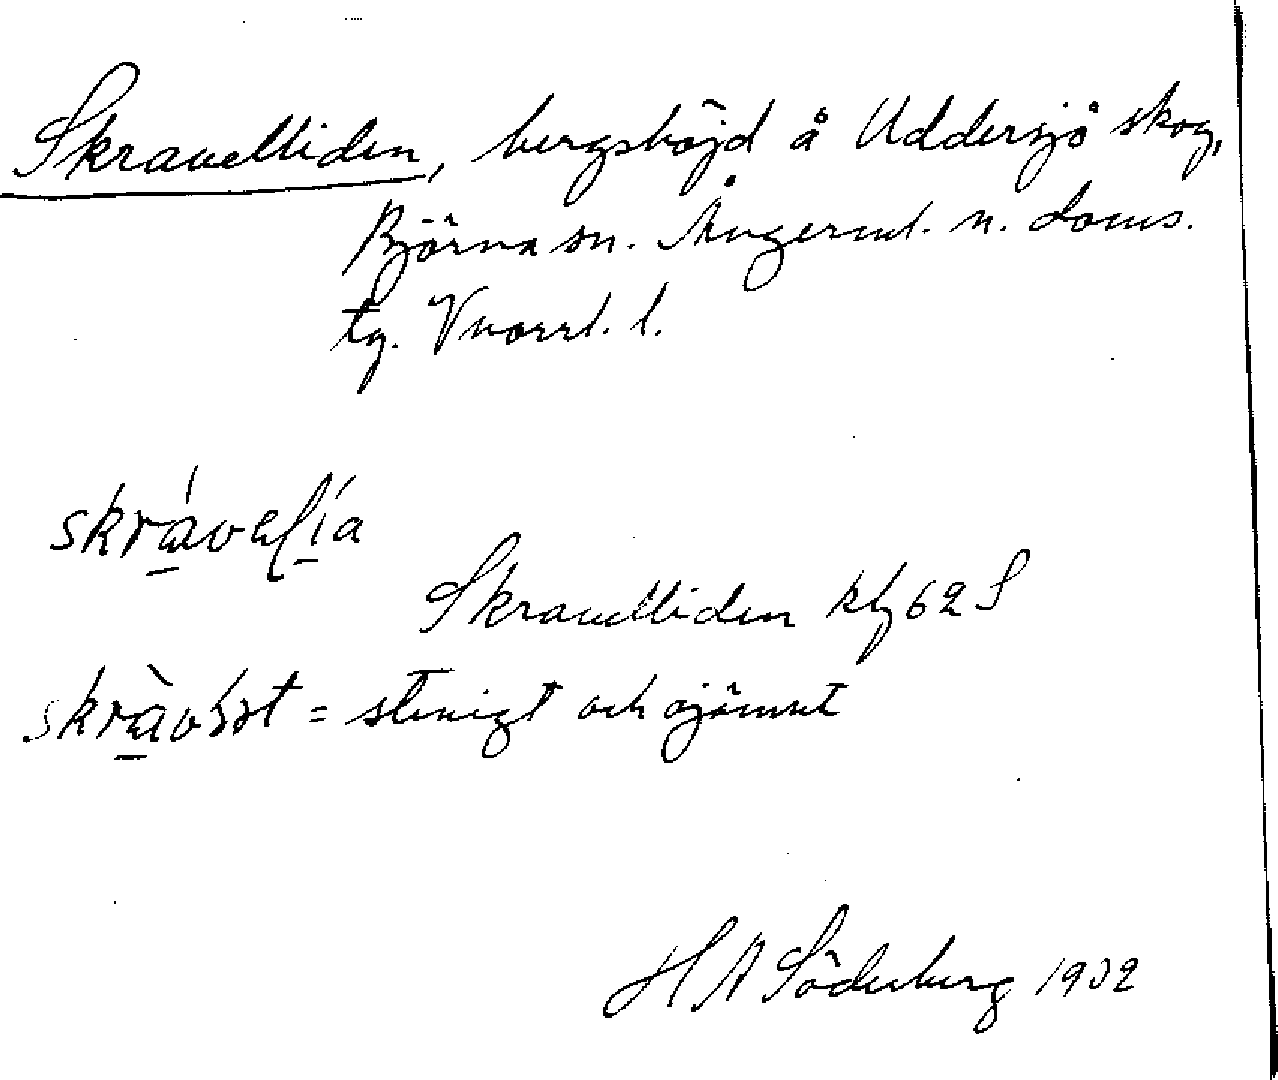 Skravelliden, bergshöjd å Uddersjö skog,
Björna sn. Ångerml. n. doms.
tg. Vnorrl. l.
skrávelía
Skravelliden kbl 62 S
= stenigt och ojämnt
H A Söderberg 1932